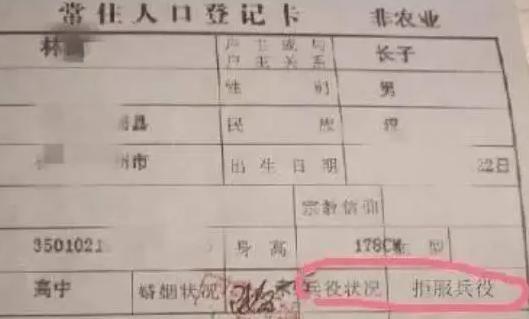 常住人口登记卡 非农业
林 户主或与 长子
户主关系
性别 男
县 民族 汉
市 出生日期 22日
宗教信仰
3501021 身高 178CM 血型
高中 婚姻状况 兵役状况 拒服兵役